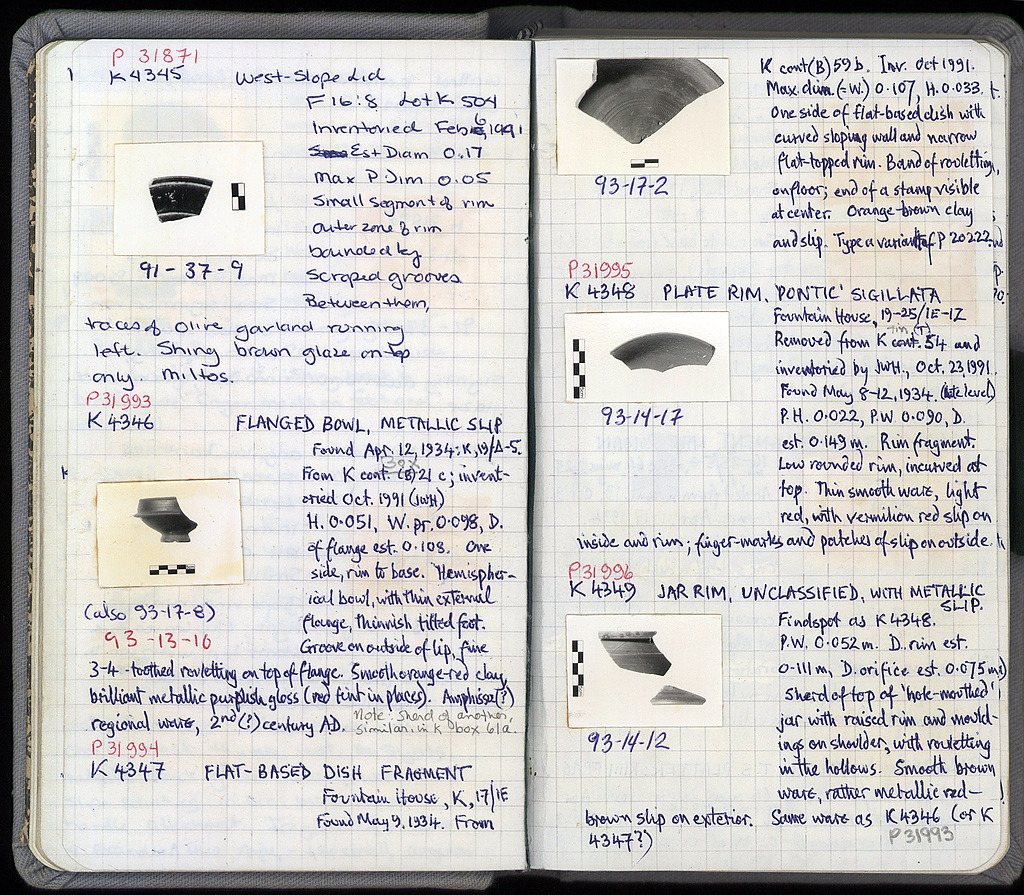 P 31871
K 4345 West-Slope Lid
F 16:8 Lot K 504
Inventoried Feb 6, 1991
Est Diam 0.17
Max P. Dim 0.05
Small segment of rim
outer zone of rim
bounded by
scraped grooves
Between them,
traces of olive garland running
left. Shiny brown glaze on top
only. Miltos.
91-37-9
P 31993
K 4346 FLANGED BOWL, METALLIC SLIP
Found Apr. 12, 1934: K, 19/Δ-5.
From K cont. (B) 21 c; invent-
oried Oct. 1991 (JWH)
H. 0.051, W. pr. 0.098, D.
of flange est. 0.108. One
side, rim to base. Hemispher-
ical bowl, with thin external
flange, thinnish tilted foot.
Groove on outside of lip, fine
(also 93-17-8)
93-13-10
3-4-toothed rouletting on top of flange. Smooth orange-red clay,
brilliant metallic purplish gloss (red tint in places). Amphissa(?)
regional ware, 2nd (?) century AD. Note: Sherd of another,
similar, in K box 61a.
P 31994
K 4347 FLAT-BASED DISH FRAGMENT
Fountain House, K, 17/ΙΕ
Found May 9, 1934. From
K cont (B) 59 b. Inv. Oct 1991.
Max. dim. (=W.) 0.107, H. 0.033.
One side of flat-based dish with
curved sloping wall and narrow
flat-topped rim. Band of rouletting,
on floor; end of a stamp visible
at center. Orange-brown clay
and slip. Type a variant of P 20222.
93-17-2
P 31995
K 4348 PLATE RIM, 'PONTIC' SIGILLATA
Fountain House, 19-25/ΙΕ-ΙΖ
Removed from K cont. 54 and
inventoried by JWH., Oct. 23, 1991.
Found May 8-12, 1934. (late level)
P.H. 0.022, P.W. 0.090, D.
est. 0.149 m. Rim fragment.
Low rounded rim, incurved at
top. Thin smooth ware, light
red, with vermilion red slip on
inside and rim; finger-marks and patches of slip on outside.
93-14-17
P 31996
K 4349 JAR RIM, UNCLASSIFIED, WITH METALLIC
SLIP.
Findspot as K 4348.
P.W. 0.052 m. D. rim est.
0.111 m, D. orifice est. 0.075 m
Sherd of top of 'hole-mouthed'
jar with raised rim and mould-
ings on shoulder, with rouletting
in the hollows. Smooth brown
ware, rather metallic red-
brown slip on exterior. Same ware as K 4346 (or K
4347?)
P 31993
93-14-12